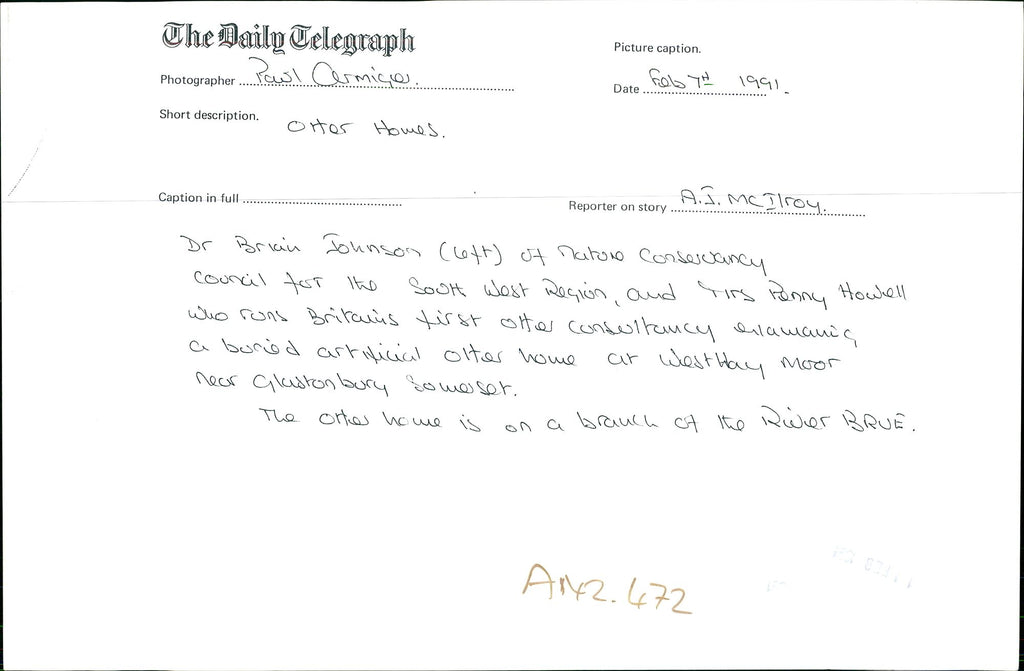 The Daily Telegraph
Picture caption.
Photographer Paul Armiger.
Date Feb 7TH 1991.
Short description.
Otter Homes.
Caption in full
Reporter on story A.J. McIlroy.
Dr Brian Johnson (left) of Nature Conservancy
Council for the South West Region, and Mrs Penny Howell
who runs Britains first otter consultancy examaning
a buried artificial otter home at Westhay Moor
near Glastonbury Somerset.
The otter home is on a branch of the River BRUE.
A142.472